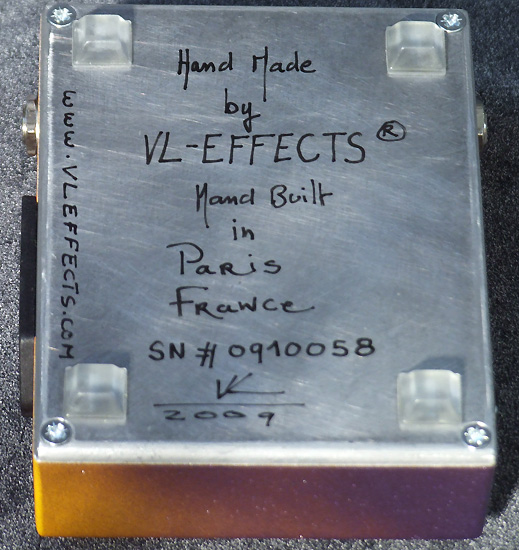 Hand Made
by
VL-EFFECTS ®
Hand Built
in
PARIS
FRANCE
SN # 0910058
VL
2009
WWW.VLEFFECTS.COM